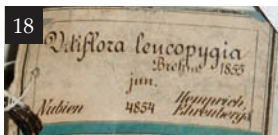 18
Vitiflora leucopygia
Brehm 1855
jun.
Nubien 4854 Hemprich.
Ehrenberg